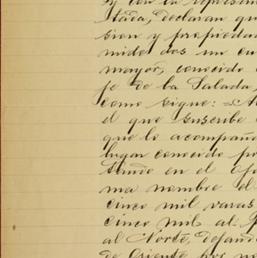 y con la represen
tada, declaran qu
sion y propiedad
mide dos un cu
mayor, conocido
je de la Salada,
como sigue:
el que suscribe
que lo acompaña
lugar conocido po
situado en el
ma nombre el
cinco mil varas
cinco mil al
al Norte, dejand
de Oriente por